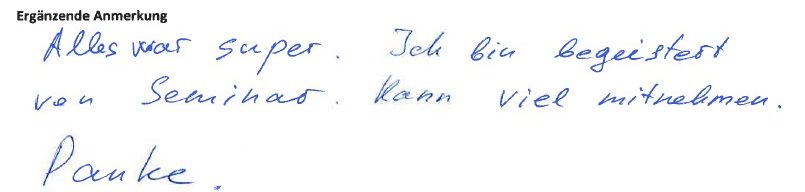 Ergänzende Anmerkung
Alles war super. Ich bin begeistert
von Seminar. Kann viel mitnehmen.
Danke.